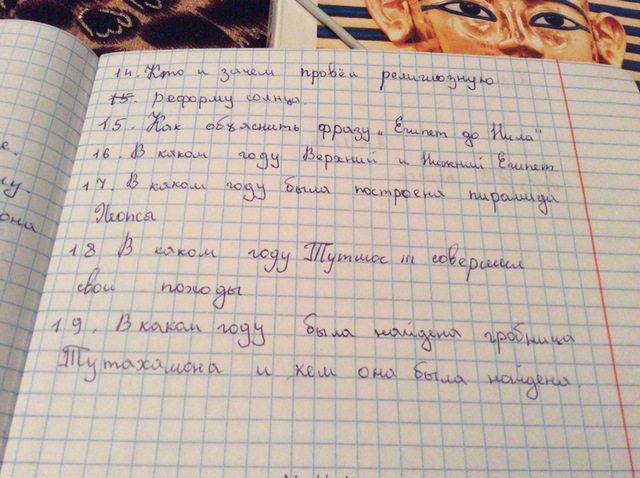 е.
му.
она
14. Кто и зачем провёл религиозную
15. реформу солнца.
15. Как объяснить фразу „Египет до Нила"
16. В каком году Верхний и Нижний Египет
17. В каком году была построена пирамида
Хеопса
18 В каком году Тутмос III совершил
свои походы
19. В каком году была найдена гробница
Тутахамона и кем она была найдена.